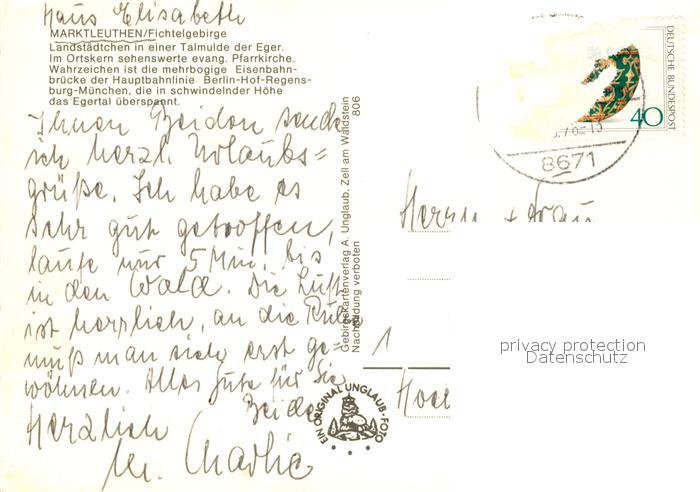 Haus Elisabeth
MARKTLEUTHEN/Fichtelgebirge
Landstädtchen in einer Talmulde der Eger.
Im Ortskern sehenswerte evang. Pfarrkirche.
Wahrzeichen ist die mehrbogige Eisenbahn-
brücke der Hauptbahnlinie Berlin-Hof-Regens-
burg-München, die in schwindelnder Höhe
das Egertal überspannt.
Ihnen Beiden sende
ich herzl. Urlaubs=
grüße. Ich habe es
sehr gut getroffen,
laufe nur 5 Min. bis
in den Wald. Die Luft
ist herrlich, an die Ruhe
muß man sich erst ge=
wöhnen. Alles Gute für Sie
Beide
Herzlich
Ihr. Charlie
Gebirgskartenverlag A. Unglaub, Zell am Waldstein
806
Nachbildung verboten
EIN ORIGINAL UNGLAUB-FOTO
DEUTSCHE BUNDESPOST
40
8671
Herrn + Frau
1
privacy protection
Datenschutz